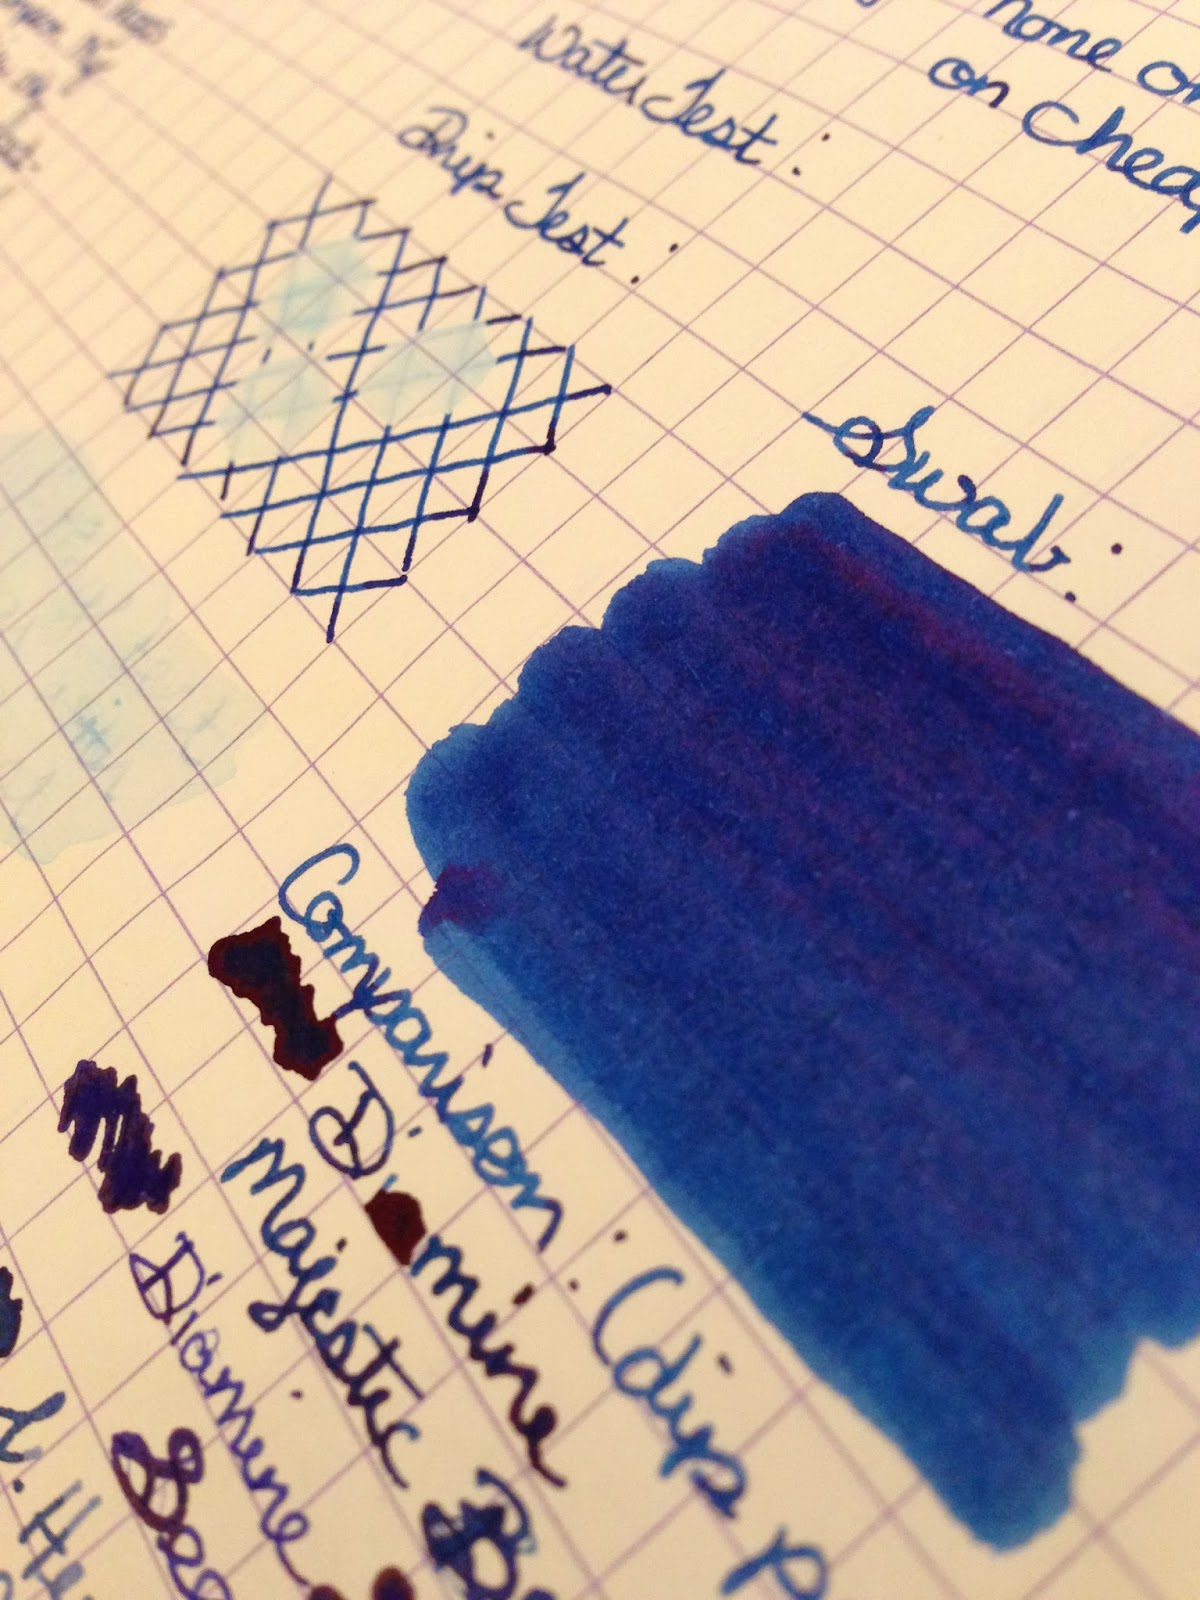 none on
on Cheap
Water Test :
Drip Test :
Swab :
Comparison : (dip p
Diamine
Majestic B
Diamine
J. He